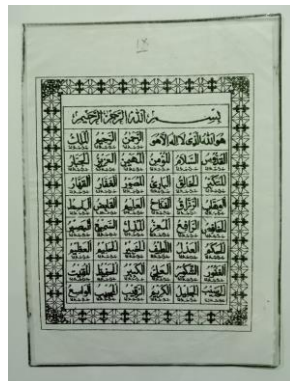 بسم الله الرحمن الرحيم
هو الله الذي لا اله الا هو الرحمن الرحيم الملك
القدوس السلام المؤمن المهيمن العزيز الجبار
المتكبر الخالق البارئ المصور الغفار القهار
الوهاب الرزاق الفتاح العليم القابض الباسط
الخافض الرافع المعز المذل السميع البصير
الحكم العدل اللطيف الخبير الحليم العظيم
الغفور الشكور العلي الكبير الحفيظ المقيت
الحسيب الجليل الكريم الرقيب المجيب الواسع